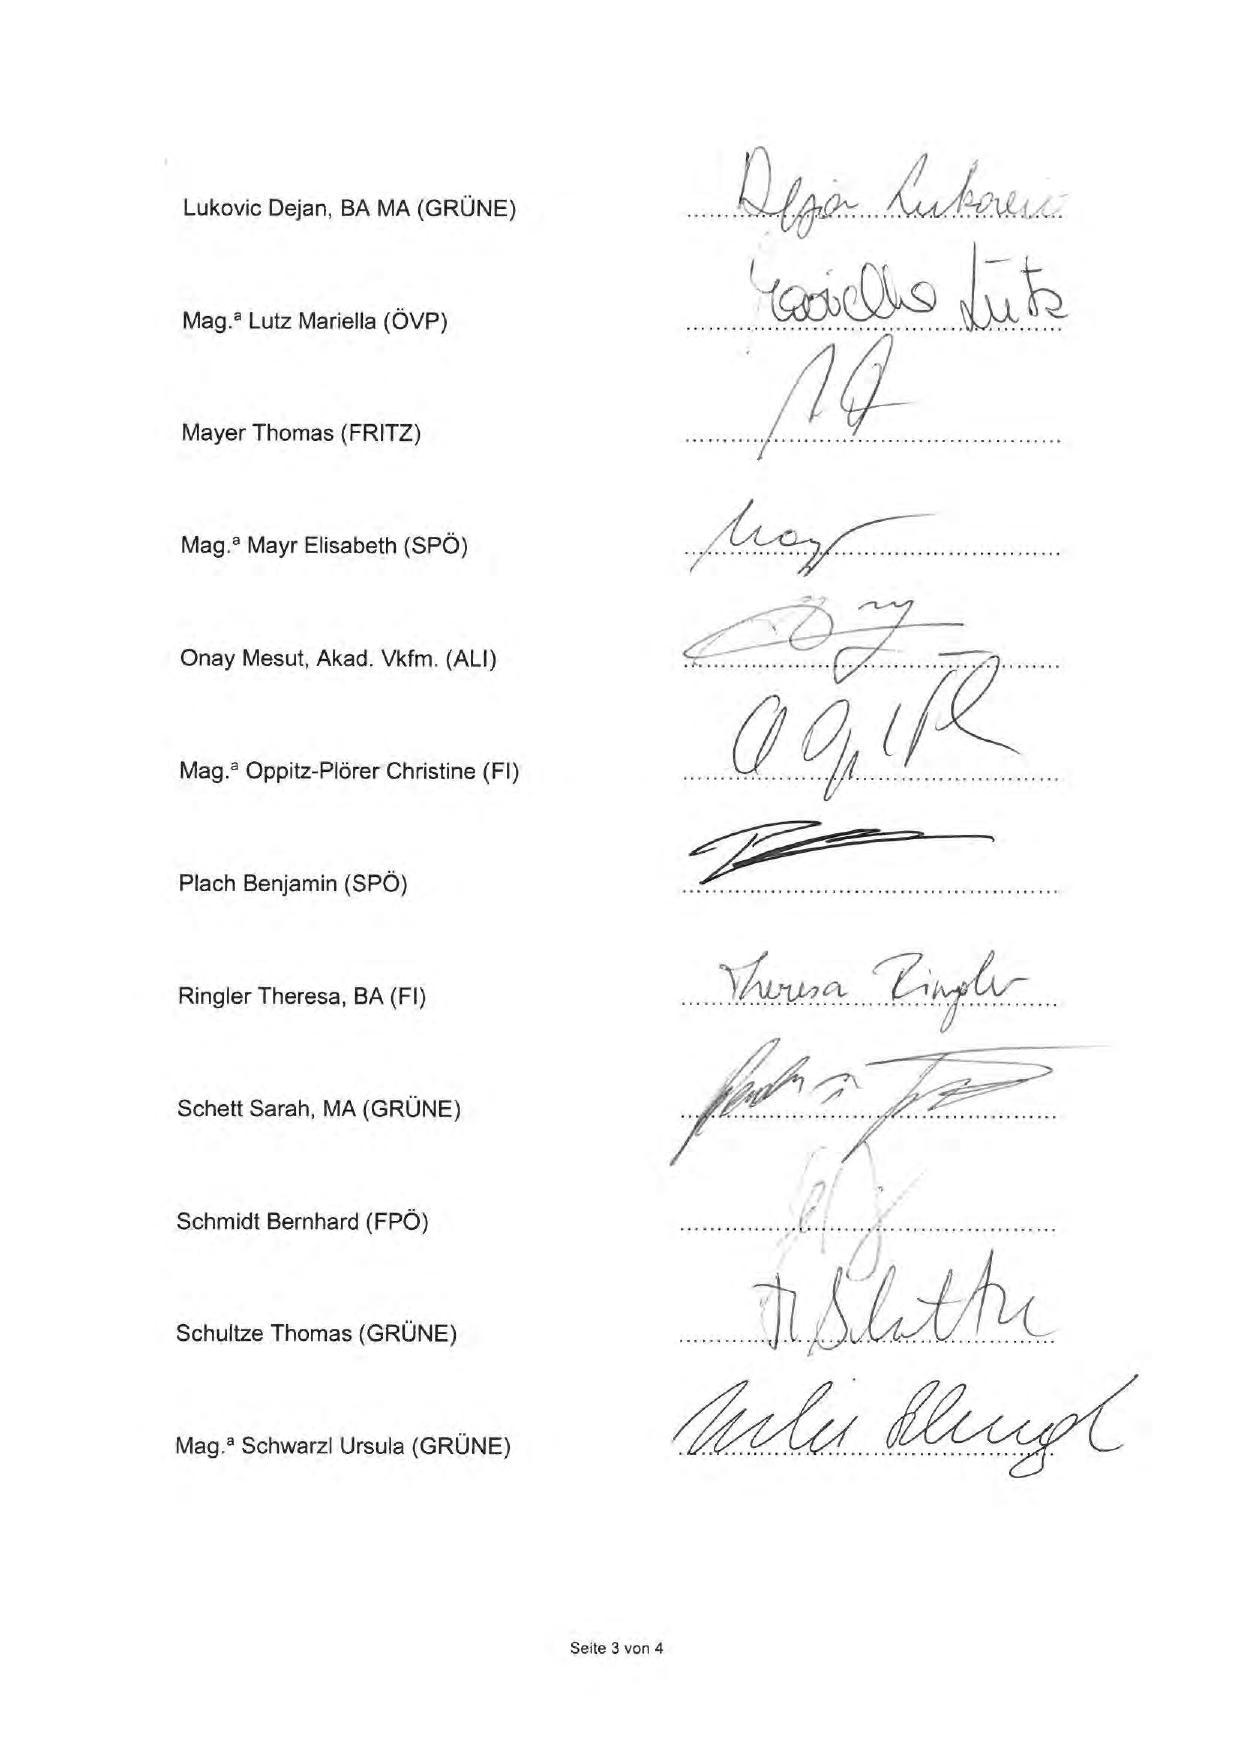 Lukovic Dejan, BA MA (GRÜNE) Dejan Lukovic
Mag.ª Lutz Mariella (ÖVP) Mariella Lutz
Mayer Thomas (FRITZ)
Mag.ª Mayr Elisabeth (SPÖ) Mayr
Onay Mesut, Akad. Vkfm. (ALI)
Mag.ª Oppitz-Plörer Christine (FI)
Plach Benjamin (SPÖ)
Ringler Theresa, BA (FI) Theresa Ringler
Schett Sarah, MA (GRÜNE)
Schmidt Bernhard (FPÖ)
Schultze Thomas (GRÜNE)
Mag.ª Schwarzl Ursula (GRÜNE)
Seite 3 von 4